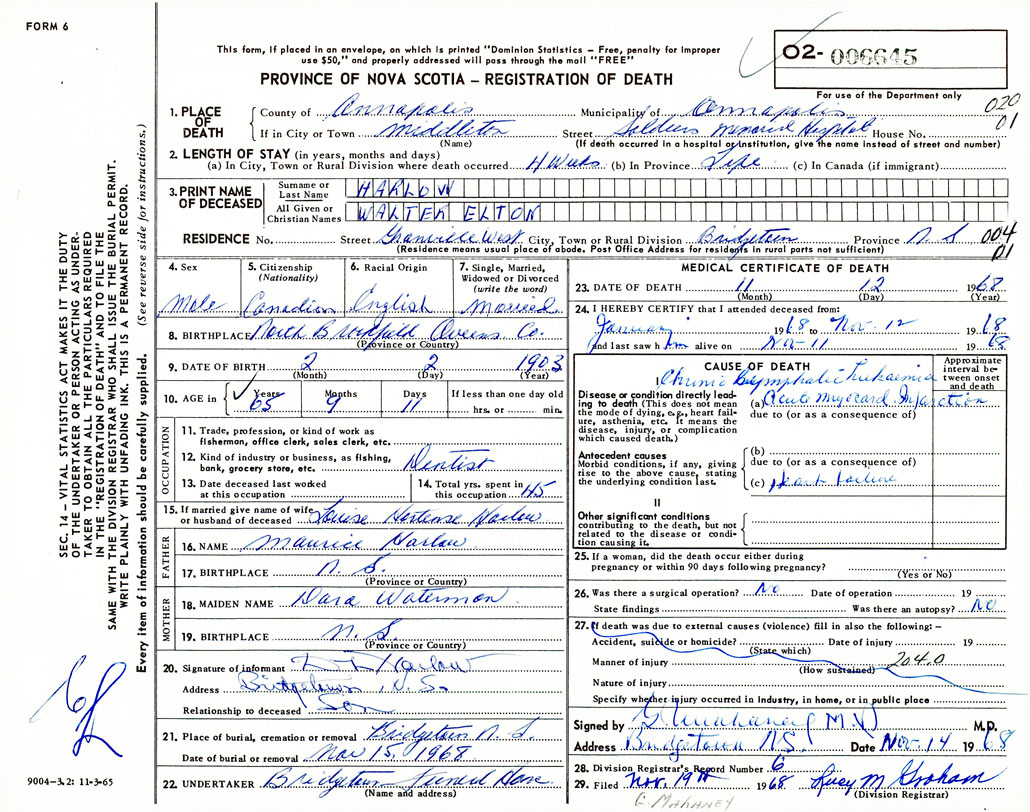 FORM 6
This form, if placed in an envelope, on which is printed "Dominion Statistics – Free, penalty for improper
use $50," and properly addressed will pass through the mail "FREE"
PROVINCE OF NOVA SCOTIA – REGISTRATION OF DEATH
O2- 006645
For use of the Department only
020
01
1. PLACE OF DEATH
County of Annapolis Municipality of Annapolis
If in City or Town Middleton Street Soldiers Memorial Hospital House No.
(Name) (If death occurred in a hospital or institution, give the name instead of street and number)
2. LENGTH OF STAY (in years, months and days)
(a) In City, Town or Rural Division where death occurred 4 Weeks (b) In Province Life (c) In Canada (if immigrant)
3. PRINT NAME OF DECEASED
Surname or Last Name HARLOW
All Given or Christian Names WALTER ELTON
RESIDENCE No. Street Granville West City, Town or Rural Division Bridgetown Province N. S 004
(Residence means usual place of abode. Post Office Address for residents in rural parts not sufficient) 01
4. Sex
Male
5. Citizenship
(Nationality)
Canadian
6. Racial Origin
English
7. Single, Married,
Widowed or Divorced
(write the word)
Married
8. BIRTHPLACE North Brookfield Queens Co.
(Province or Country)
9. DATE OF BIRTH 2 2 1903
(Month) (Day) (Year)
10. AGE in Years Months Days If less than one day old
65 9 11 hrs. or min.
OCCUPATION
11. Trade, profession, or kind of work as
fisherman, office clerk, sales clerk, etc.
12. Kind of industry or business, as fishing,
bank, grocery store, etc. Dentist
13. Date deceased last worked
at this occupation
14. Total yrs. spent in
this occupation 45
15. If married give name of wife
or husband of deceased Louise Hortense Harlow
FATHER
16. NAME Maurice Harlow
17. BIRTHPLACE N. S.
(Province or Country)
MOTHER
18. MAIDEN NAME Dara Waterman
19. BIRTHPLACE N. S.
(Province or Country)
20. Signature of informant Harlow
Address Bridgetown, N. S.
Relationship to deceased Son
21. Place of burial, cremation or removal Bridgetown N. S.
Date of burial or removal Nov 15, 1968
22. UNDERTAKER Bridgetown Funeral Home
(Name and address)
MEDICAL CERTIFICATE OF DEATH
23. DATE OF DEATH 11 12 1968
(Month) (Day) (Year)
24. I HEREBY CERTIFY that I attended deceased from:
January 1968 to Nov. 12 1968
and last saw him alive on Nov-11 1968
CAUSE OF DEATH
Approximate interval between onset and death
I Chronic Lymphatic Leukaemia
Disease or condition directly leading to death (This does not mean the mode of dying, e.g., heart failure, asthenia, etc. It means the disease, injury, or complication which caused death.)
(a) Acute Myocard. Infarction
due to (or as a consequence of)
Antecedent causes
Morbid conditions, if any, giving rise to the above cause, stating the underlying condition last.
(b)
due to (or as a consequence of)
(c) Heart Failure
II
Other significant conditions
contributing to the death, but not related to the disease or condition causing it.
25. If a woman, did the death occur either during
pregnancy or within 90 days following pregnancy?
(Yes or No)
26. Was there a surgical operation? No Date of operation 19
State findings Was there an autopsy? No
27. If death was due to external causes (violence) fill in also the following: –
Accident, suicide or homicide? Date of injury 19
(State which)
Manner of injury 204.0
(How sustained)
Nature of injury
Specify whether injury occurred in Industry, in home, or in public place
Signed by Mahaney M.D M.D.
Address Bridgetown N.S. Date Nov-14 1968
28. Division Registrar's Record Number 6
29. Filed Nov. 19th 1968 Lucy M Graham
(Division Registrar)
E. MAHANEY
SEC. 14 – VITAL STATISTICS ACT MAKES IT THE DUTY
OF THE UNDERTAKER OR PERSON ACTING AS UNDER-
TAKER TO OBTAIN ALL THE PARTICULARS REQUIRED
IN THE "REGISTRATION OF DEATH" AND TO FILE THE
SAME WITH THE DIVISION REGISTRAR WHO SHALL ISSUE THE BURIAL PERMIT.
WRITE PLAINLY WITH UNFADING INK. THIS IS A PERMANENT RECORD.
Every item of information should be carefully supplied. (See reverse side for instructions.)
9004-3.2: 11-3-65